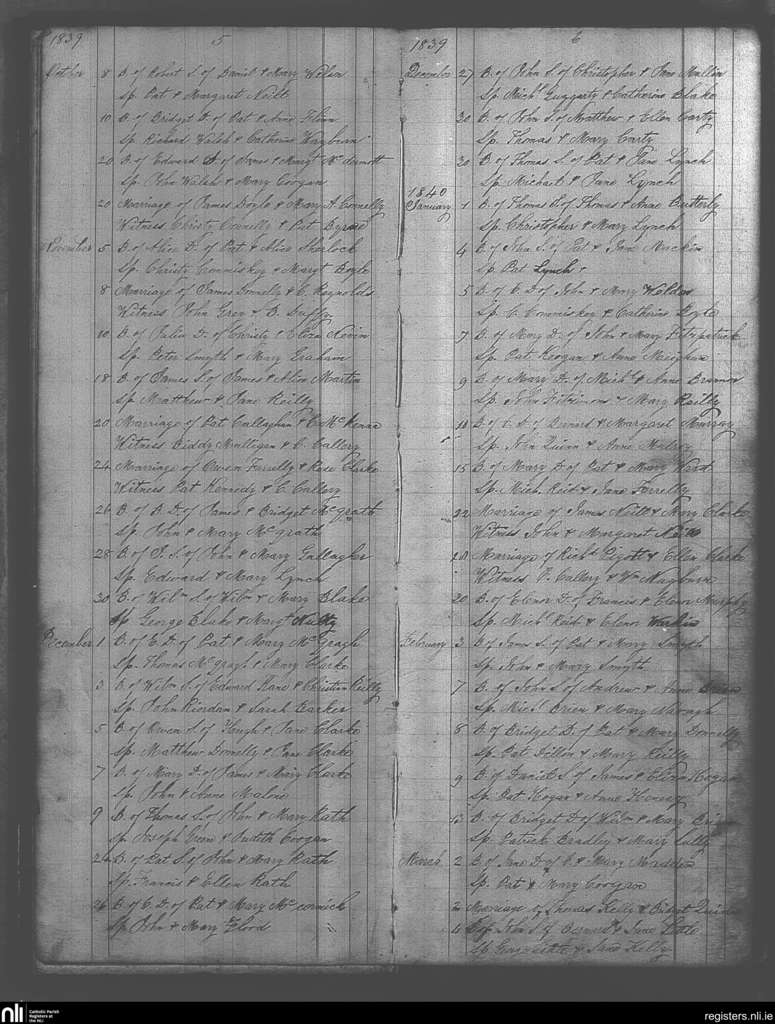 1839 5
October 8 B. of Robert S. of Daniel & Mary
Sp. Pat & Margaret Neill
10 B. of Bridget D. of Pat & Anne
Sp. Richard Walsh & Catherine
20 B. of Edward S. of Owen & Margt Mc
Sp. John Walsh & Mary Coogan
20 Marriage of James Doyle & Mary A. Connelly
Witness Christy Connelly & Pat Byrne
November 5 B. of Alice D. of Pat & Alice Sherlock
Sp. Christy Commiskey & Margt Boyle
8 Marriage of James Donnelly & C. Reynolds
Witness John Grey & B. Duffy
10 B. of Julia D. of Christy & Eliza Nevin
Sp. Peter Smyth & Mary Graham
18 B. of James S. of James & Alice Martin
Sp. Matthew & Jane Reilly
20 Marriage of Pat Callaghan & C. McKenna
Witness Biddy Mulligan & C. Callery
24 Marriage of Owen Farrelly & Rose Clarke
Witness Pat Kennedy & C. Callery
26 B. of B. D. of James & Bridget McGrath
Sp. John & Mary McGrath
28 B. of P. S. of John & Mary Gallagher
Sp. Edward & Mary Lynch
30 B. of Wilm S. of Wilm & Mary Blake
Sp George Blake & Margt Nulty
December 1 B. of E. D. of Pat & Mary McGragh
Sp. Thomas McGragh & Mary Clarke
3 B. of Wilm S. of Edward Kane & Christian Reilly
Sp. John Riordan & Sarah
5 B. of Owen S. of Hugh & Jane Clarke
Sp. Matthew Donnelly & Jane Clarke
7 B. of Mary D. of James & Mary Clarke
Sp. John & Anne Malone
9 B. of Thomas S. of John & Mary Rath
Sp. Joseph & Judith Coogan
24 B. of Pat S. of John & Mary Rath
Sp. Francis & Ellen Rath
26 B. of C. D. of Pat & Mary McCormick
Sp. John & Mary Flood
1839 6
December 27 B. of John S. of Christopher & Jane Mullin
Sp. Michl Guggarty & Catherine Blake
30 B. of John S. of Matthew & Ellen Carty
Sp. Thomas & Mary Carty
30 B. of Thomas S. of Pat & Jane Lynch
Sp. Michael & Jane Lynch
1840
January 1 B. of Thomas S. of Thomas & Anne Butterly
Sp. Christopher & Mary Lynch
4 B. of John S. of Pat & Jane Mackin
Sp. Pat Lynch
5 B. of C. D. of John & Mary Weldon
Sp. C. Commiskey & Catherine Boyle
7 B. of Mary D. of John & Mary Fitzpatrick
Sp. Pat Keogan & Anne
9 B. of Mary D. of Michl & Anne
Sp. John Fitzsimons & Mary Reilly
11 B. of C. D. of Bernard & Margaret Murray
Sp. John Quinn & Anne
15 B. of Mary D. of Pat & Mary Ward
Sp. Mich Reid & Jane Farrelly
22 Marriage of James Neill & Mary Clarke
Witness John & Margaret Neill
18 Marriage of Richd Pigott & Ellen Clarke
Witness P. Callery & Wm
20 B. of Elenor D. of Francis & Elenor Murphy
Sp. Michl Reid & Elenor
February 3 B. of Jane S. of Pat & Mary Smyth
Sp. John & Mary Smyth
7 B. of John S. of Andrew & Anne Brien
Sp. Michl Brien & Mary
8 B. of Bridget D. of Pat & Mary Donnelly
Sp. Pat Dillon & Mary Reilly
9 B. of Daniel S. of James & Eliza Hogan
Sp. Pat Hogan & Anne
13 B. of Bridget D. of Wilm & Mary
Sp. Patrick Bradley & Mary Tully
March 2 B. of Jane D. of C. & Mary Madden
Sp. Pat & Mary Coogan
2 Marriage of Thomas Kelly & Bridget
4 B. of John S. of Bernard & Jane
Sp. George & Jane Kelly
nli Catholic Parish
Registers at
the NLI
registers.nli.ie